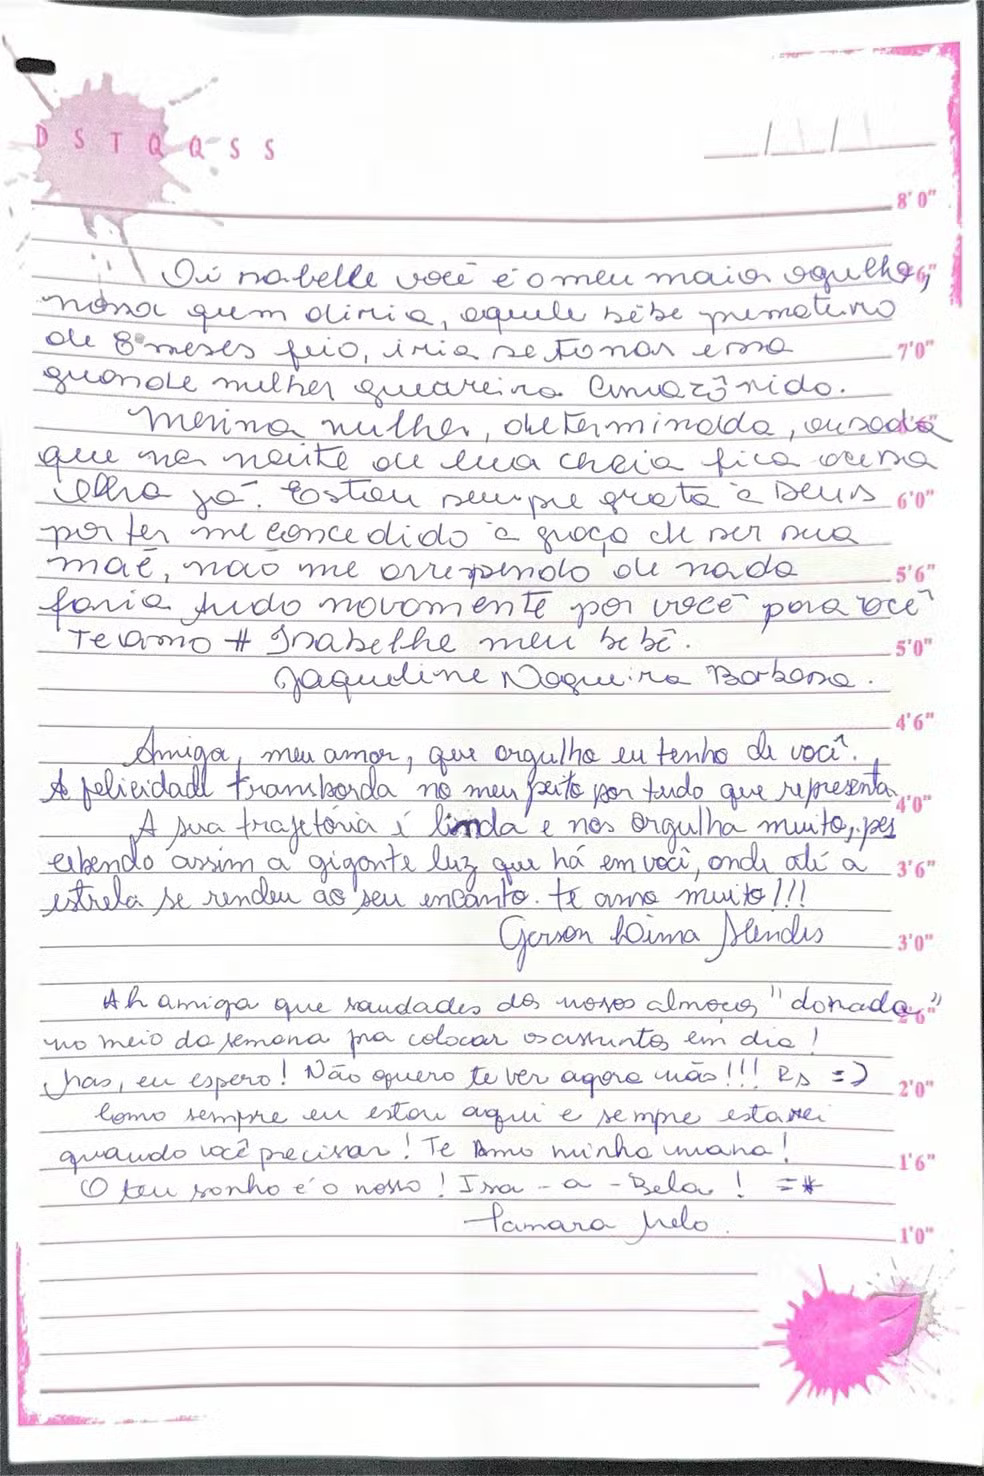 D S T Q Q S S
/ /
8'0"
Oi nabelle você é o meu maior ogulho,
nossa quem diria, aquele bêbe prematuro
de 8 meses feio, iria se tonar essa
7'0"
grande mulher guerreira Amazônida.
Menina mulher, determinada, ousada
que na noite de lua cheia fica
olha já. Estou sempre grata à Deus
6'0"
por ter me concedido a graça de ser sua
maẽ, não me arrependo de nada
5'6"
faria tudo novamente por você para você
Te amo # Isabelhe meu bebê.
5'0"
Jaqueline Nogueira Barbosa.
4'6"
Amiga, meu amor, que orgulho eu tenho de você.
A felicidade transborda no meu peito por tudo que representa
4'0"
A sua trajetória é linda e nos orgulha muito, per
cebendo assim a gigante luz que há em você, onde até a
3'6"
estrela se rendeu ao seu encanto. te amo muito!!!
Gerson Lima Mendes
3'0"
Ah amiga que saudades dos nosos almoços "donada"
2'6"
no meio da semana pra colocar os assuntos em dia!
Mas, eu espero! Não quero te ver agora não!!! Rs =)
2'0"
Como sempre eu estou aqui e sempre estarei
quando você precisar! Te Amo minha mana!
1'6"
O teu sonho é o nosso! Isa - a - Bela! =*
Tamara Melo.
1'0"